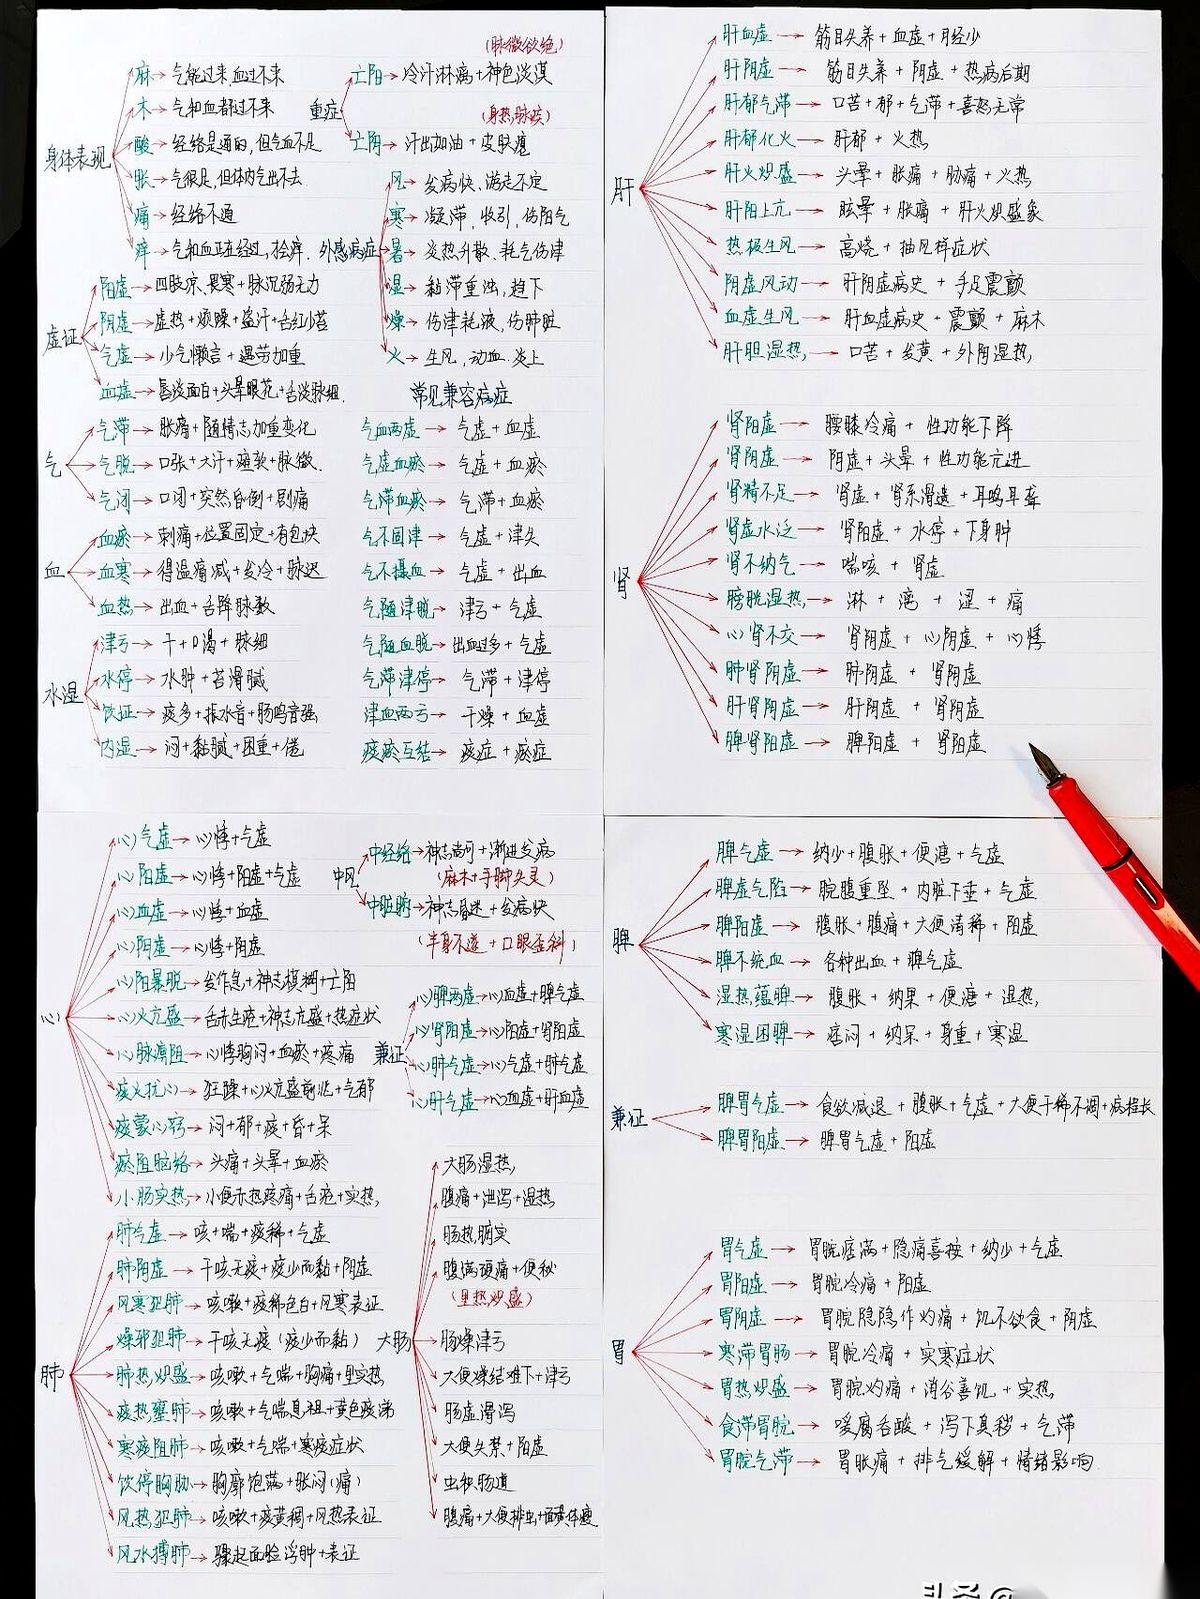 身体表现
麻→气能过来,血过不来
木→气和血都过不来
酸→经络是通的,但气血不足
胀→气很足,但体内气出不去
痛→经络不通
痒→气和血正在经过,拴痒.
虚证
阳虚→四肢凉、畏寒+脉沉弱无力
阴虚→虚热+烦躁+盗汗+舌红少苔
气虚→少气懒言+遇劳加重
血虚→唇淡面白+头晕眼花+舌淡脉细.
气
气滞→胀痛+随情志加重变化
气脱→口张+大汗+瘫软+脉微.
气闭→口闭+突然昏倒+剧痛
血
血瘀→刺痛+位置固定+有包块
血寒→得温痛减+发冷+脉迟
血热→出血+舌降脉数
水湿
津亏→干+口渴+脉细
水停→水肿+苔滑腻
饮证→痰多+振水音+肠鸣音强
内湿→闷+黏腻+困重+倦
重症
(脉微欲绝)
亡阳→冷汗淋漓+神色淡漠
(身热,脉疾)
亡阴→汗出如油+皮肤瘪
外感病症
风→发病快、游走不定
寒→凝滞、收引、伤阳气
暑→炎热升散、耗气伤津
湿→黏滞重浊,趋下
燥→伤津耗液,伤肺脏
火→生风,动血.炎上
常见兼容病症
气血两虚→气虚+血虚
气虚血瘀→气虚+血瘀
气滞血瘀→气滞+血瘀
气不固津→气虚+津失
气不摄血→气虚+出血
气随津脱→津亏+气虚
气随血脱→出血过多+气虚
气滞津停→气滞+津停
津血两亏→干燥+血虚
痰瘀互结→痰症+瘀症
肝
肝血虚→筋目失养+血虚+月经少
肝阴虚→筋目失养+阴虚+热病后期
肝郁气滞→口苦+郁+气滞+喜怒无常
肝郁化火→肝郁+火热
肝火炽盛→头晕+胀痛+胁痛+火热
肝阳上亢→眩晕+胀痛+肝火炽盛象
热极生风→高烧+抽风样症状
阴虚风动→肝阴虚病史+手足震颤
血虚生风→肝血虚病史+震颤+麻木
肝胆湿热→口苦+发黄+外阴湿热
肾
肾阳虚→腰膝冷痛+性功能下降
肾阴虚→阴虚+头晕+性功能亢进
肾精不足→肾虚+肾系滑遗+耳鸣耳聋
肾虚水泛→肾阳虚+水停+下身肿
肾不纳气→喘咳+肾虚
膀胱湿热→淋+浊+涩+痛
心肾不交→肾阴虚+心阴虚+心悸
肺肾阴虚→肺阴虚+肾阴虚
肝肾阴虚→肝阴虚+肾阴虚
脾肾阳虚→脾阳虚+肾阳虚
心
心气虚→心悸+气虚
心阳虚→心悸+阳虚+气虚
心血虚→心悸+血虚
心阴虚→心悸+阴虚
心阳暴脱→发作急+神志模糊+亡阳
心火亢盛→舌赤生疮+神志亢盛+热症状
心脉痹阻→心悸胸闷+血瘀+疼痛
痰火扰心→狂躁+心火亢盛前兆+气郁
痰蒙心窍→闷+郁+痰+昏+呆
瘀阻脑络→头痛+头晕+血瘀
小肠实热→小便赤热疼痛+舌疮+实热
中风
中经络→神志尚可+渐进发病
(麻木+手脚失灵)
中脏腑→神志昏迷+发病快
(半身不遂+口眼歪斜)
兼证
心脾两虚→心血虚+脾气虚
心肾阳虚→心阳虚+肾阳虚
心肺气虚→心气虚+肺气虚
心肝气虚→心血虚+肝血虚
肺
肺气虚→咳+喘+痰稀+气虚
肺阴虚→干咳无痰+痰少而黏+阴虚
风寒犯肺→咳嗽+痰稀色白+风寒表证
燥邪犯肺→干咳无痰(痰少而黏)
肺热炽盛→咳嗽+气喘+胸痛+里实热
痰热壅肺→咳嗽+气喘息粗+黄色痰涕
寒痰阻肺→咳嗽+气喘+寒痰症状
饮停胸胁→胸廓饱满+胀闷(痛)
风热犯肺→咳嗽+痰黄稠+风热表证
风水搏肺→骤起面睑浮肿+表证
大肠
大肠湿热
腹痛+泄泻+湿热
肠热腑实
腹满硬痛+便秘
(里热炽盛)
肠燥津亏
大便燥结难下+津亏
肠虚滑泻
大便失禁+阳虚
虫积肠道
腹痛+大便排虫+面黄体瘦
脾
脾气虚→纳少+腹胀+便溏+气虚
脾虚气陷→脘腹重坠+内脏下垂+气虚
脾阳虚→腹胀+腹痛+大便清稀+阳虚
脾不统血→各种出血+脾气虚
湿热蕴脾→腹胀+纳呆+便溏+湿热
寒湿困脾→痞闷+纳呆+身重+寒湿
兼证
脾胃气虚→食欲减退+腹胀+气虚+大便干稀不调+病程长
脾胃阳虚→脾胃气虚+阳虚
胃
胃气虚→胃脘痞满+隐痛喜按+纳少+气虚
胃阳虚→胃脘冷痛+阳虚
胃阴虚→胃脘隐隐作灼痛+饥不欲食+阴虚
寒滞胃肠→胃脘冷痛+实寒症状
胃热炽盛→胃脘灼痛+消谷善饥+实热
食滞胃脘→嗳腐吞酸+泻下臭秽+气滞
胃脘气滞→胃胀痛+排气缓解+情绪影响